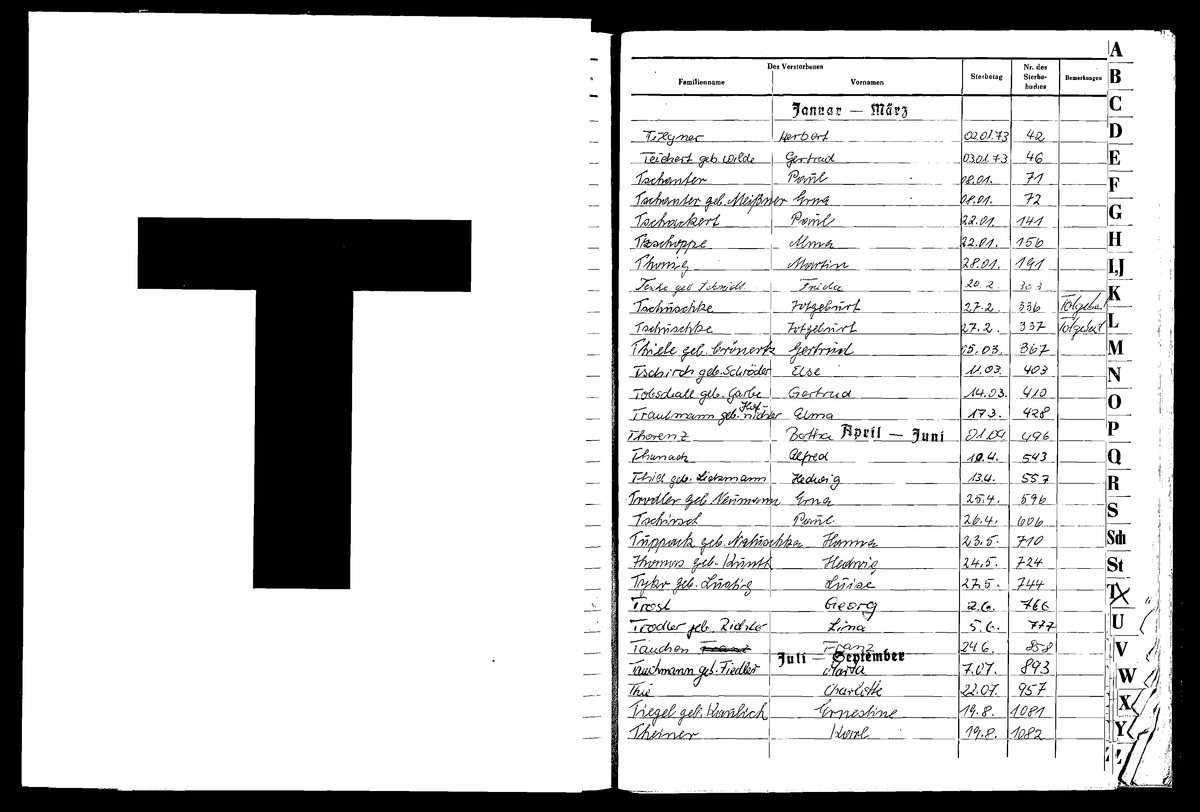 T
Des Verstorbenen
Familienname Vornamen Sterbetag Nr. des Sterbebuches Bemerkungen
Januar — März
Herbert 02.01.73 42
Teichert geb. Wilde Gertrud 03.01.73 46
Tschanter Paul 08.01. 71
Tschanter geb. Meißner Erna 08.01. 72
Tschackert Paul 22.01. 141
Tzschoppe Alma 22.01. 156
Thomig Martin 28.01. 191
geb. Schmidt Frieda 20.2.
Tschuschke Totgeburt 27.2. 336 Totgeburt
Tschuschke Totgeburt 27.2. 337 Totgeburt
Thiele geb. Gertrud 05.03. 367
Tschirch geb. Schröder Else 11.03. 403
Tobschall geb. Garbe Gertrud 14.03. 410
Trautmann geb. Elma 17.3. 428
April — Juni
Thorenz 01.04 496
Alfred 10.4. 543
Thiel geb. Hedwig 13.4. 557
Trodler geb Neumann Erna 25.4. 596
Tschirsch Paul 26.4. 606
Tuppack geb. Natuschka Hanna 23.5. 710
Thomas geb. Kunth Hedwig 24.5. 724
geb. Lustig Luise 27.5. 744
Trost Georg 2.6. 766
Trodler geb. Richter Lina 5.6. 777
Tauchen Franz 24.6. 858
Juli — September
Tauchmann geb. Fiedler Maria 7.07. 893
Thie Charlotte 22.07. 957
Tiegel geb. Ernestine 19.8. 1081
Theiner Karl 19.8. 1082
A
B
C
D
E
F
G
H
I,J
K
L
M
N
O
P
Q
R
S
Sch
St
T
U
V
W
X
Y
Z